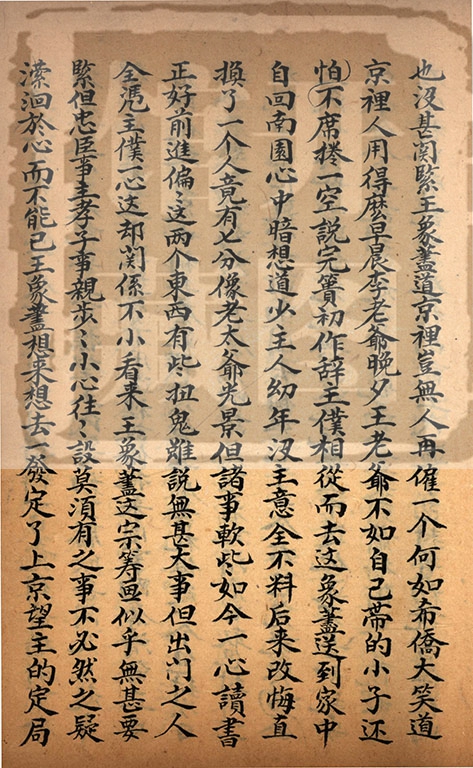 也没甚関緊王象藎道京裡豈無人再僱一个何如希僑大笑道
京裡人用得麽早晨李老爺晩夕王老爺不如自己帯的小子还
怕不席捲一空説完簣初作辞主僕相從而去这象藎送到家中
自回南園心中暗想道少主人幼年没主意全不料后来改悔直
換了一个人竟有七分像老太爺光景但諸事軟些如今一心讀書
正好前進偏〻这两个東西有些扭鬼雖説無甚大事但出門之人
全凴主僕一心这却関係不小看来王象藎这宗筹画似乎無甚要
緊但忠臣事主孝子事親歩〻小心往〻設莫須有之事不必然之疑
潆洄於心而不能已王象藎想来想去一發定了上京望主的定局